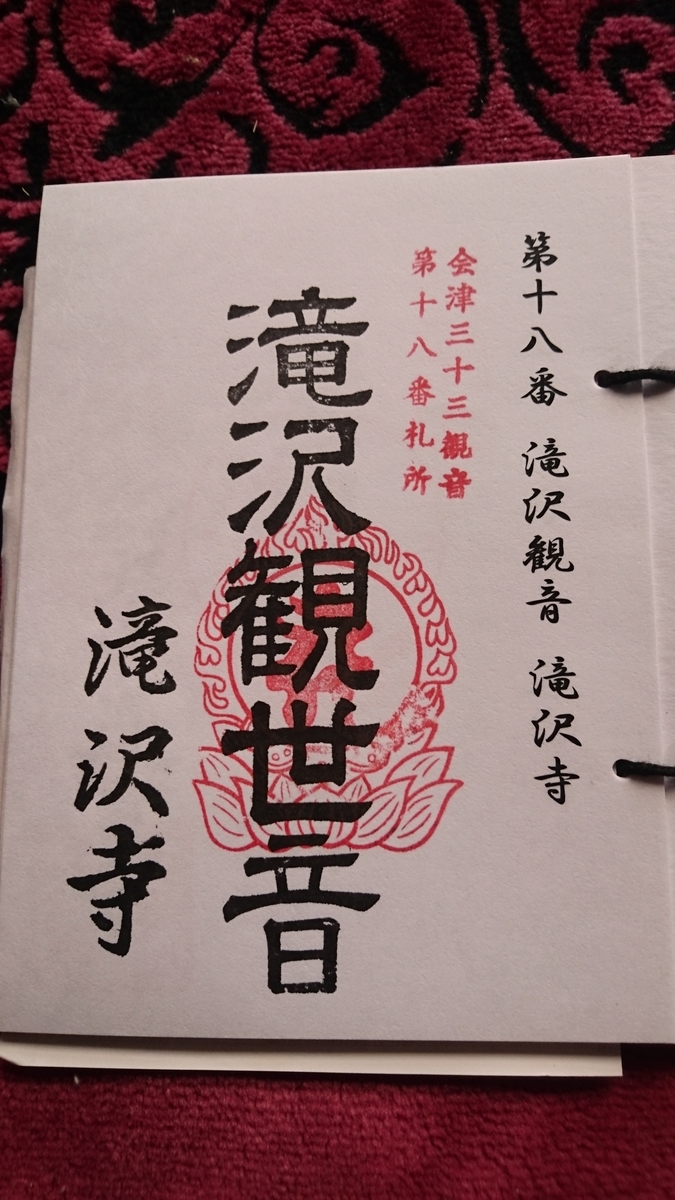 第十八番 滝沢観音 滝沢寺
会津三十三観音
第十八番札所
滝沢観世音
滝沢寺